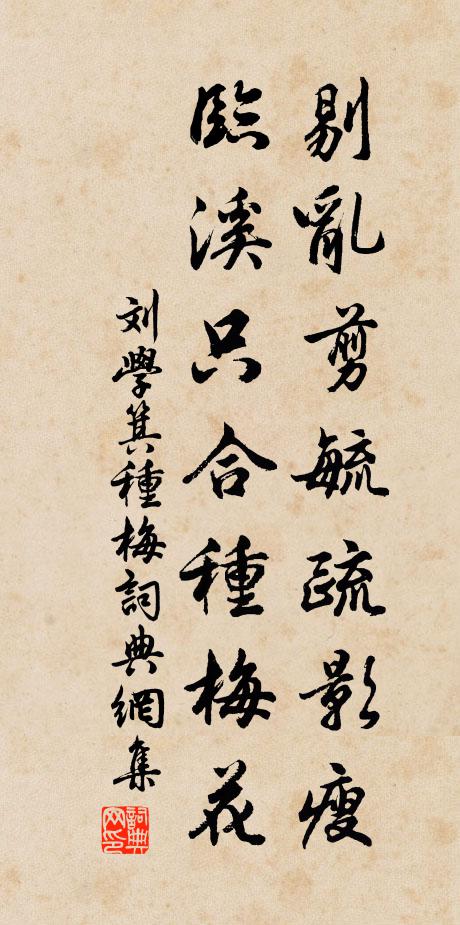 剔亂剪毓疏影瘦
臨溪只合種梅花
刘學箕種梅詞典網集
詞典网印